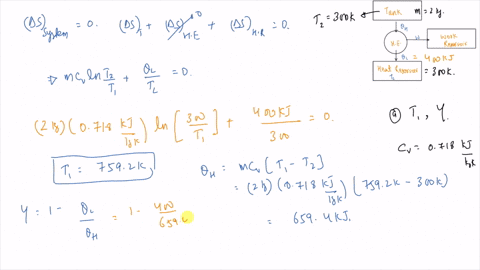 (ΔS)system = 0. (ΔS)T + (ΔS)H.E → 0 + (ΔS)H.R = 0.
⇒ mCv ln T2/T1 + QL/TL = 0.
(2 kg) (0.718 kJ/kgK) ln [300/T1] + 400 kJ/300 = 0.
T1 = 759.2K,
QH = mCv [T1 - T2]
= (2 kg) (0.718 kJ/kgK) [759.2K - 300K]
= 659.4 KJ.
η = 1 - QL/QH = 1 - 400/659.
T2 = 300K
Tank m = 2 kg.
QH
H.E
W
Work Reservoir
QL = 400 KJ
Heat Reservoir = 300K.
@ T1, η.
Cv = 0.718 kJ/kgK